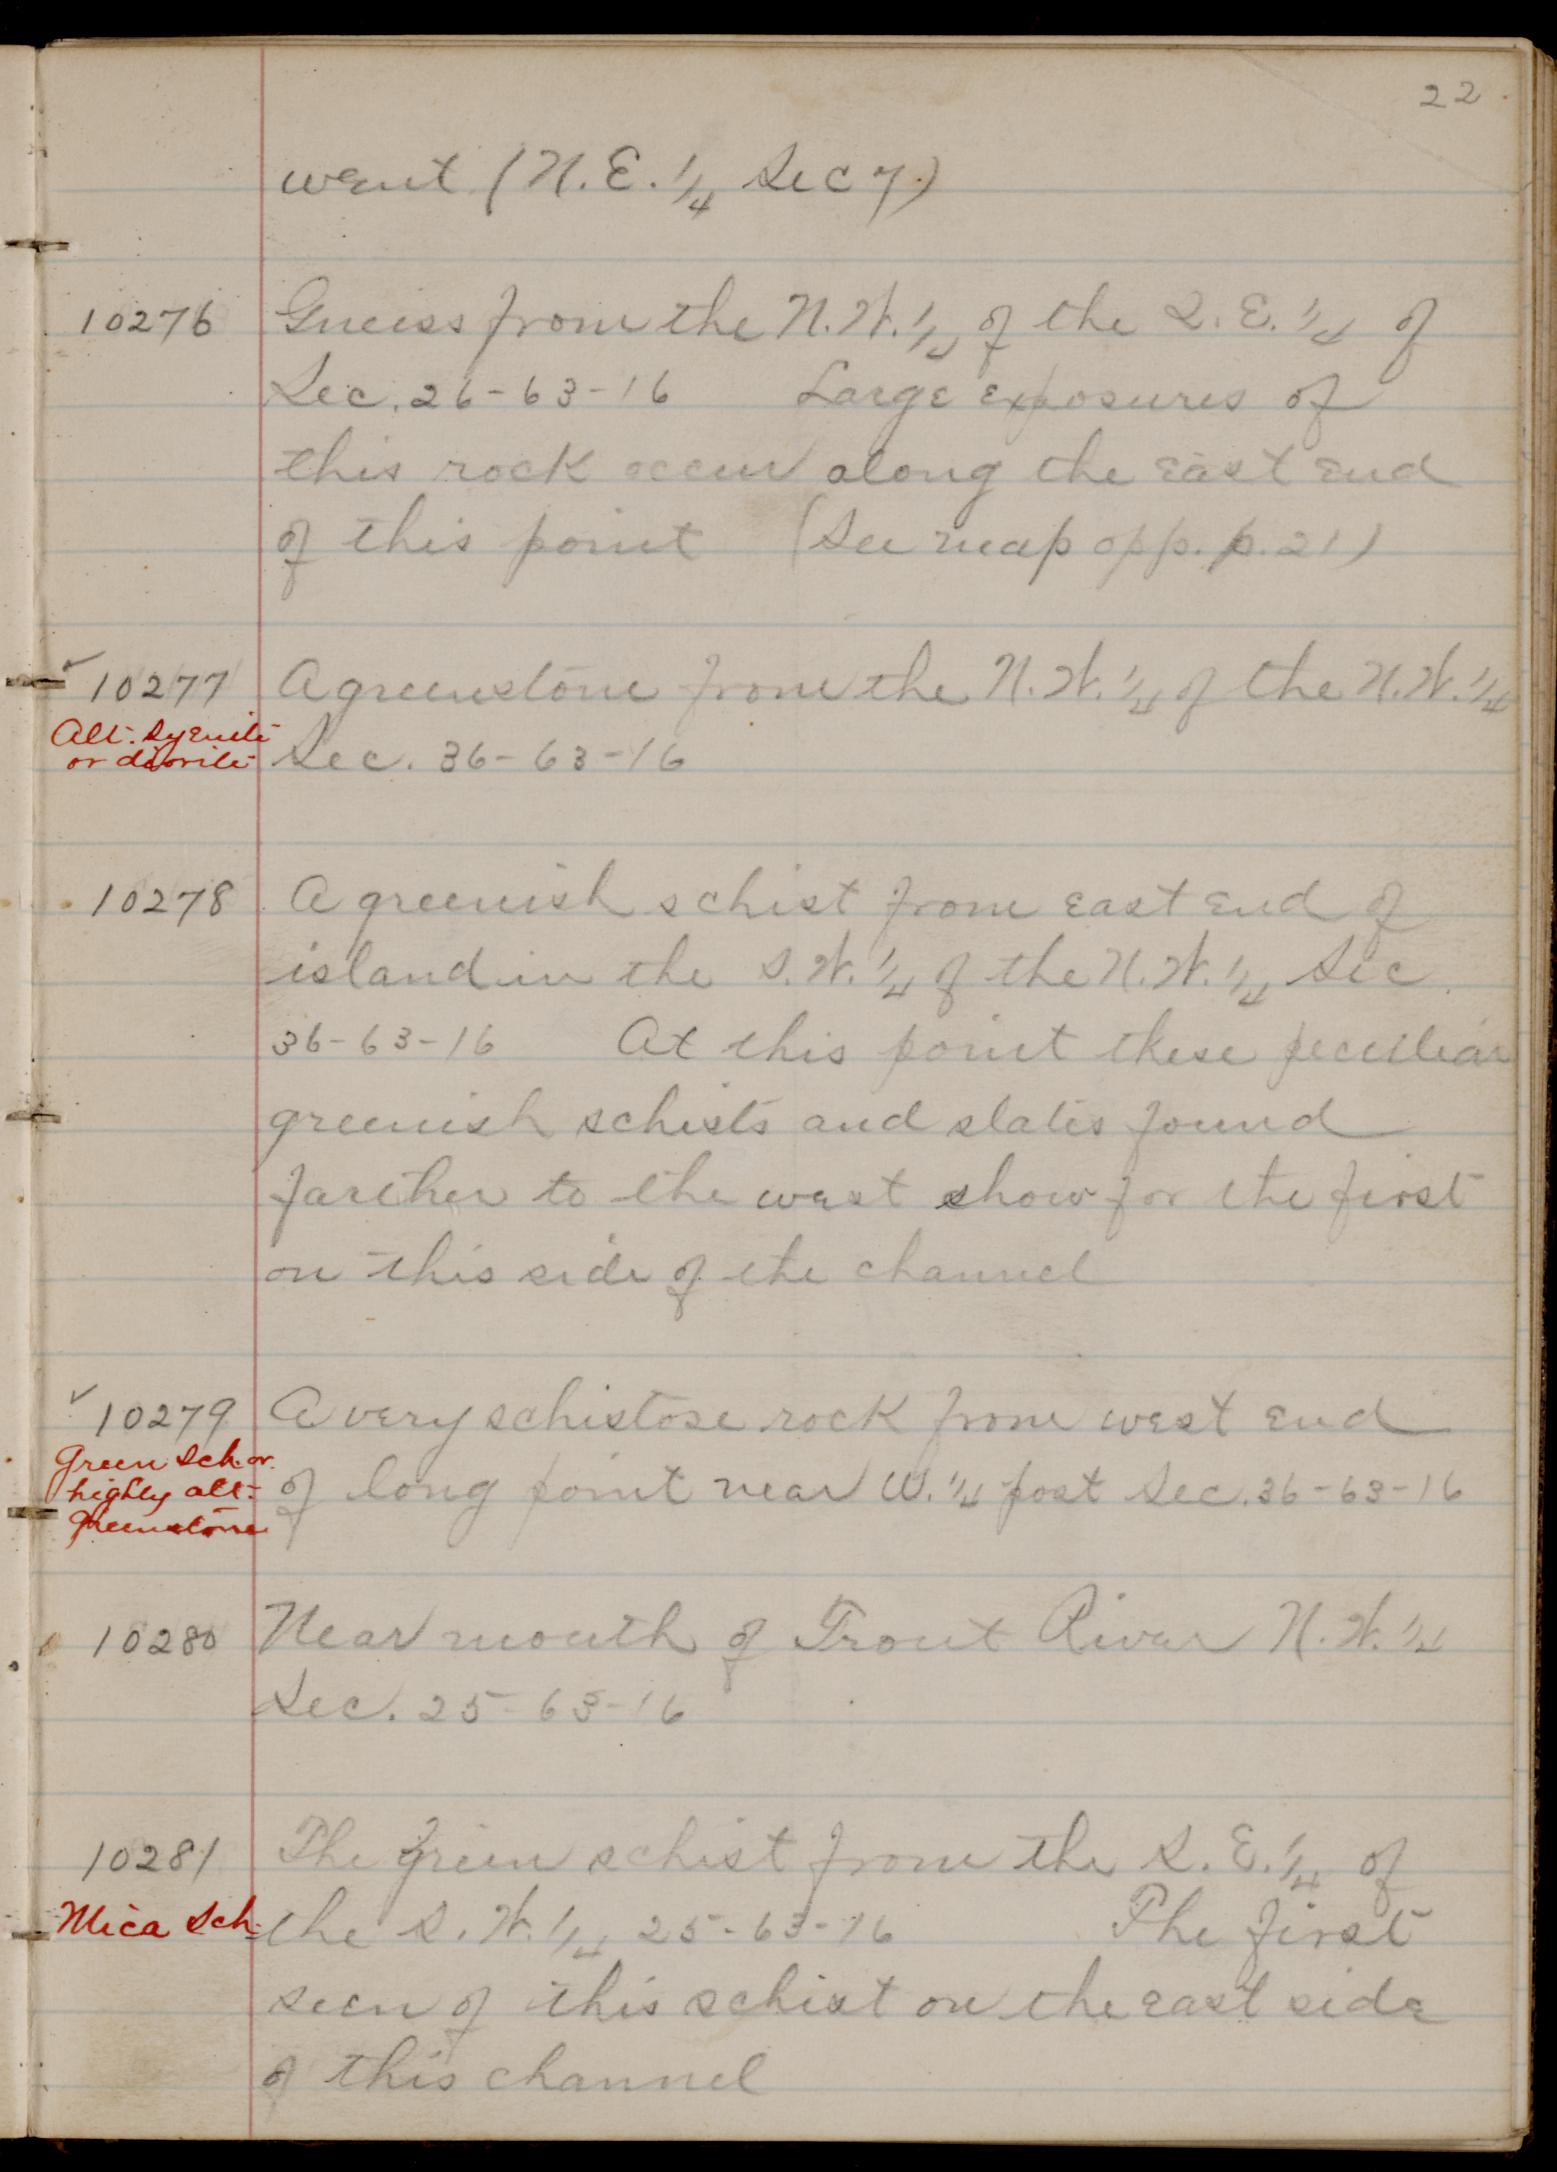 22
went (N.E. 1/4 Sec 7)
10276 Gneiss from the N.W. 1/4 of the S.E. 1/4 of
Sec. 26-63-16 Large exposures of
this rock occur along the east end
of this point (See map opp. p. 21)
✓ 10277 A greenstone from the N.W. 1/4 of the N.W. 1/4
Alt. Syenite
or diorite Sec. 36-63-16
10278 A greenish schist from east end of
island in the S.W. 1/4 of the N.W. 1/4 Sec.
36-63-16 At this point these peculiar
greenish schists and slates found
farther to the west show for the first
on this side of the channel
✓ 10279 A very schistose rock from west end
Green Sch. or
highly alt. of long point near W. 1/4 post Sec. 36-63-16
Greenstone
10280 Near mouth of Trout River N.W. 1/4
Sec. 25-63-16
10281 The green schist from the S.E. 1/4 of
Mica Sch. the S.W. 1/4 25-63-16 The first
seen of this schist on the east side
of this channel